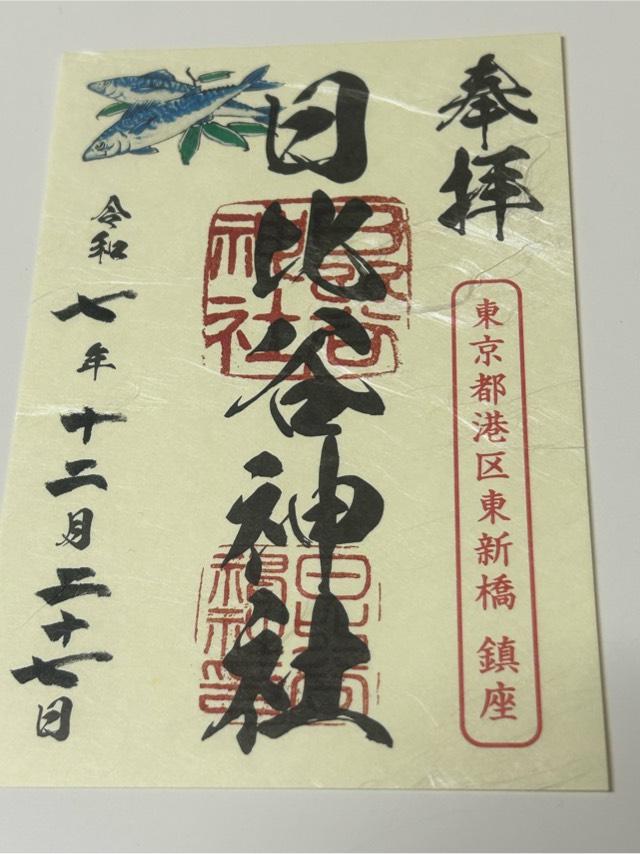 奉拝
東京都港区東新橋 鎮座
日比谷神社
令和七年十二月二十七日